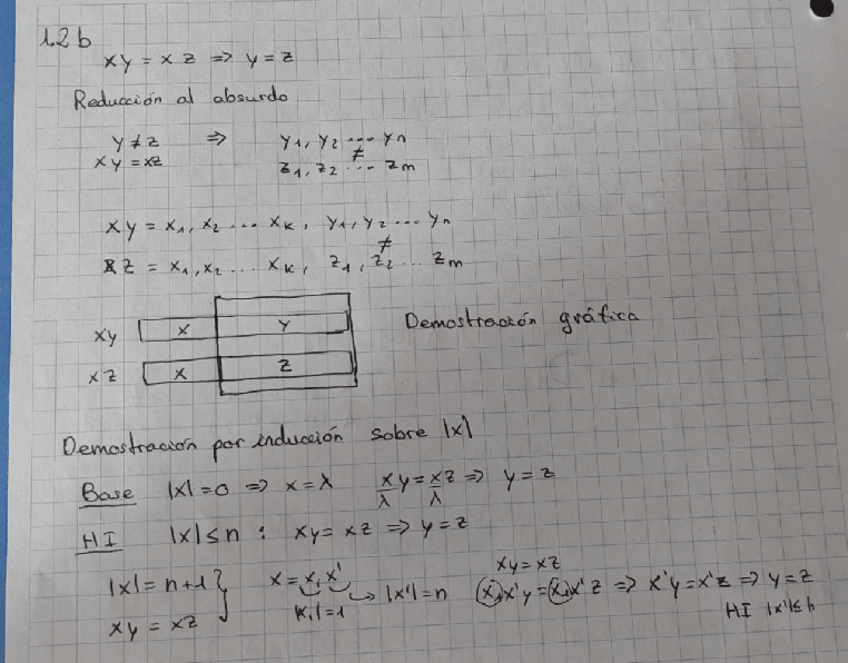 1.2 b
xy = x z ⇒ y = z
Reducción al absurdo
y ≠ z ⇒ y1, y2 ... yn
≠
xy = xz z1, z2 ... zm
xy = x1, x2 ... xk, y1, y2 ... yn
≠
xz = x1, x2 ... xk, z1, z2 ... zm
xy x y Demostración gráfica
xz x z
Demostración por inducción sobre |x|
Base |x| = 0 ⇒ x = λ xy = xz ⇒ y = z
λ λ
HI |x| ≤ n : xy = xz ⇒ y = z
xy = xz
|x| = n + 1 } x = x1 x' → |x'| = n x1x'y = x1x'z ⇒ x'y = x'z ⇒ y = z
xy = xz |x1| = 1 HI |x'| ≤ n